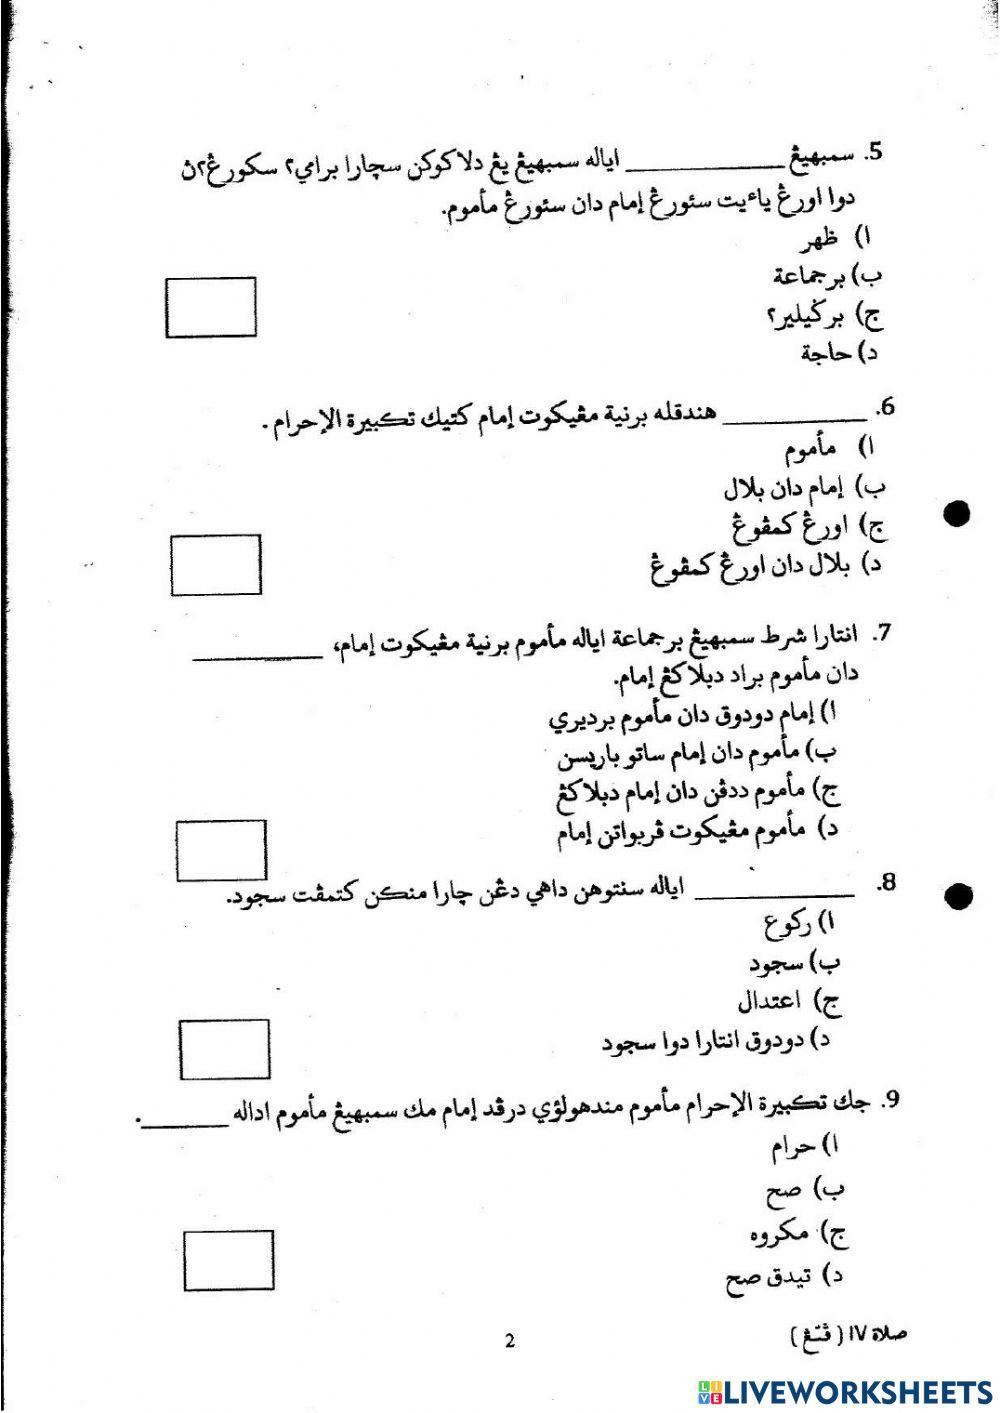 5. سمبهيڠ ______ اياله سمبهيڠ يڠ دلاکوکن سچارا برامي٢ سکورڠ٢ڽ
دوا اورڠ ياءيت سئورڠ إمام دان سئورڠ مأموم.
ا) ظهر
ب) برجماعة
ج) برݢيلير٢
د) حاجة
6. ______ هندقله برنية مڠيکوت إمام کتيک تکبيرة الإحرام .
ا) مأموم
ب) إمام دان بلال
ج) اورڠ کمڤوڠ
د) بلال دان اورڠ کمڤوڠ
7. انتارا شرط سمبهيڠ برجماعة اياله مأموم برنية مڠيکوت إمام، ______
دان مأموم براد دبلاکڠ إمام.
ا) إمام دودوق دان مأموم برديري
ب) مأموم دان إمام ساتو باريسن
ج) مأموم ددڤن دان إمام دبلاکڠ
د) مأموم مڠيکوت ڤربواتن إمام
8. ______ اياله سنتوهن داهي دڠن چارا منکن کتمڤت سجود.
ا) رکوع
ب) سجود
ج) اعتدال
د) دودوق انتارا دوا سجود
9. جک تکبيرة الإحرام مأموم مندهولوءي درڤد إمام مک سمبهيڠ مأموم اداله ______.
ا) حرام
ب) صح
ج) مکروه
د) تيدق صح
صلاة ١٧ ( ڤتڠ )
2
LIVEWORKSHEETS